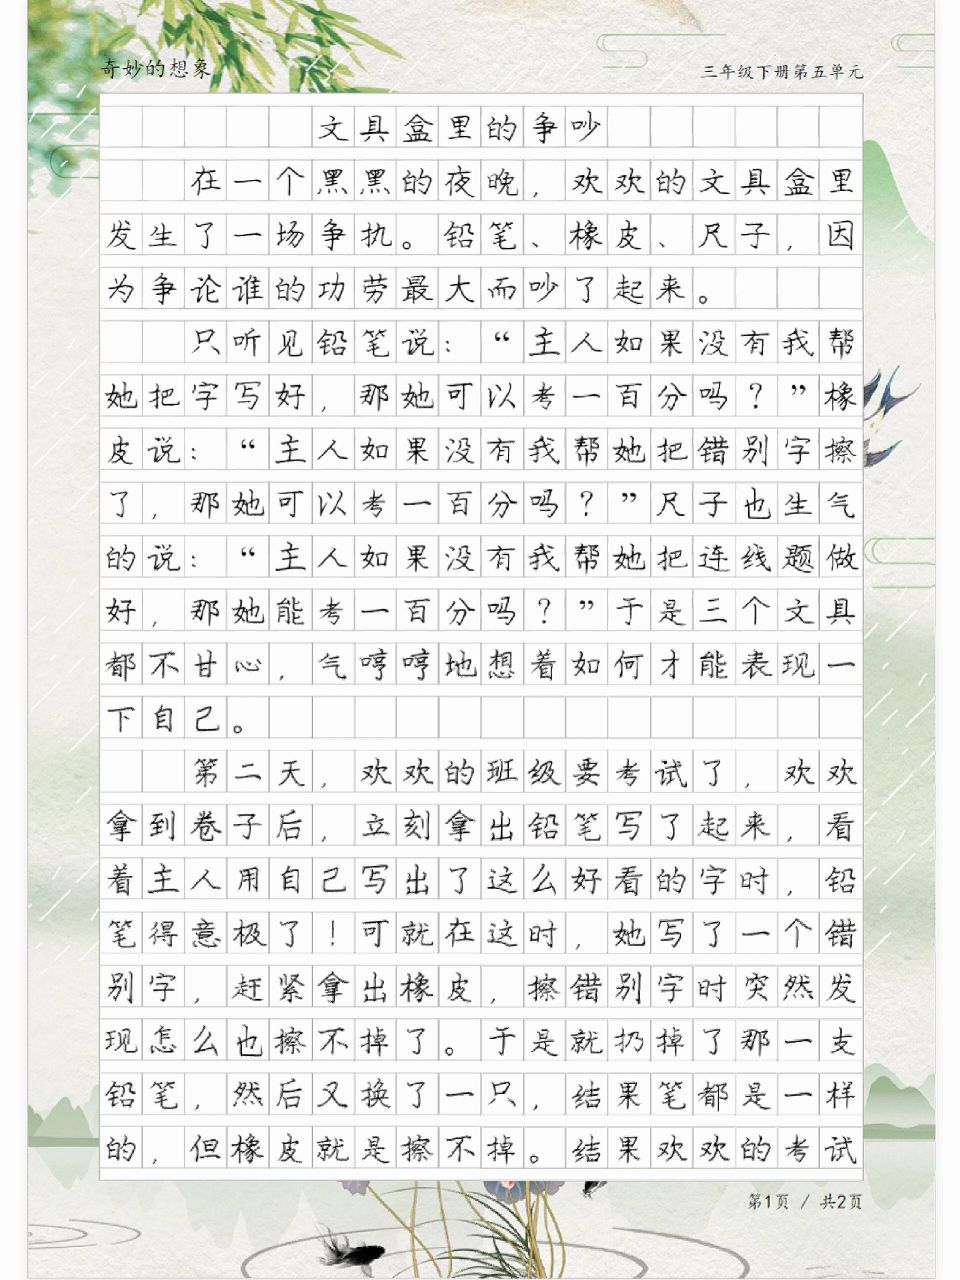 奇妙的想象
三年级下册第五单元
文具盒里的争吵
在一个黑黑的夜晚，欢欢的文具盒里
发生了一场争执。铅笔、橡皮、尺子，因
为争论谁的功劳最大而吵了起来。
只听见铅笔说：“主人如果没有我帮
她把字写好，那她可以考一百分吗？”橡
皮说：“主人如果没有我帮她把错别字擦
了，那她可以考一百分吗？”尺子也生气
的说：“主人如果没有我帮她把连线题做
好，那她能考一百分吗？”于是三个文具
都不甘心，气哼哼地想着如何才能表现一
下自己。
第二天，欢欢的班级要考试了，欢欢
拿到卷子后，立刻拿出铅笔写了起来，看
着主人用自己写出了这么好看的字时，铅
笔得意极了！可就在这时，她写了一个错
别字，赶紧拿出橡皮，擦错别字时突然发
现怎么也擦不掉了。于是就扔掉了那一支
铅笔，然后又换了一只，结果笔都是一样
的，但橡皮就是擦不掉。结果欢欢的考试
第1页 / 共2页